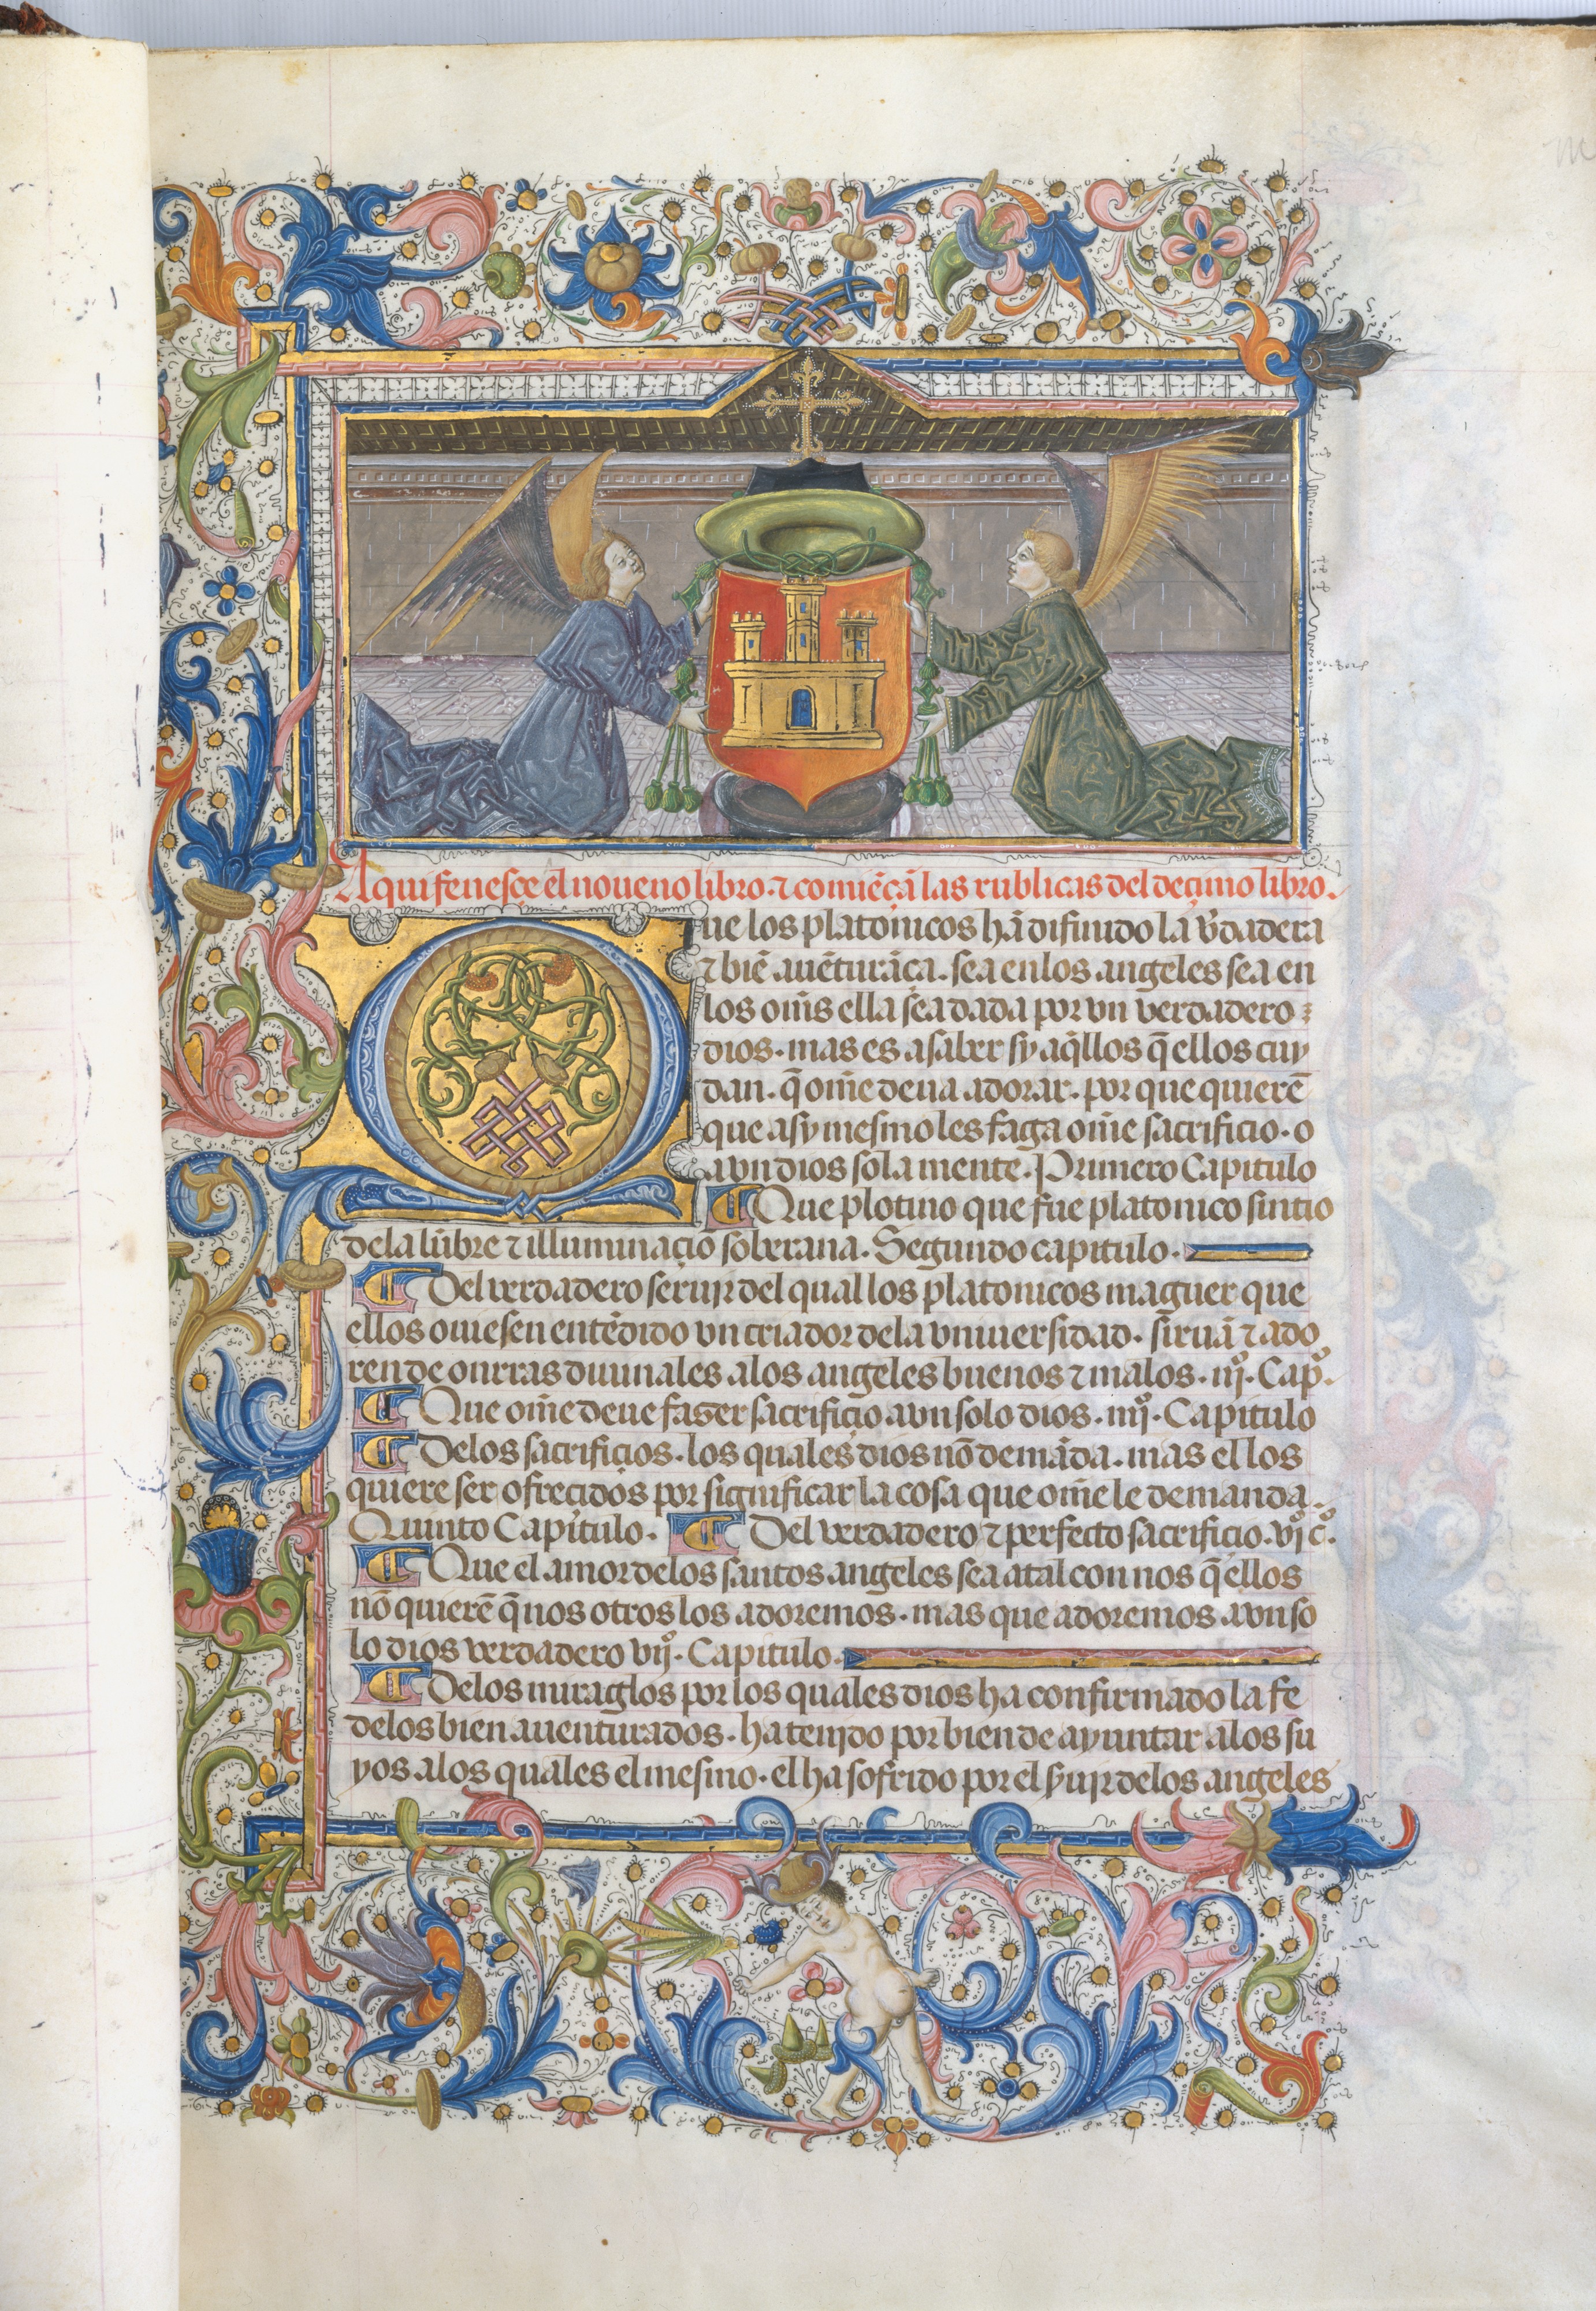 Aqui fenesçe el noueno libro · ⁊ comiẽçã las rublicas del deçimo libro .
Que los platonicos hã difinido la ṽdadera
⁊ biẽ auẽturãça . sea en los angeles sea en
los om̃s ella sea dada por vn verdadero
dios · mas es a saber sy aq̃llos q̃ ellos cuy
dan · q̃ om̃e deua adorar · por que quierẽ
que asy mesmo les faga om̃e sacrificio · o
a vn dios sola mente · Primero Capitulo
¶ Que plotino que fue platonico sintio
de la lũbre ⁊ illuminaçiõ soberana · Segundo capitulo ·
¶ Del verdadero seruir del qual los platonicos maguer que
ellos ouiesen entẽdido vn criador de la vniuersidad · siruã ⁊ ado
ren de onrras diuinales a los angeles buenos ⁊ malos · iijº · Capº ·
¶ Que om̃e deue faser sacrifiçio a vn solo dios · iiijº · Capitulo
¶ De los sacrifiçios · los quales dios nõ demãda · mas el los
quiere ser ofrecidos por significar la cosa que om̃e le demanda ·
Quinto Capitulo · ¶ Del verdadero ⁊ perfecto sacrificio · vjº cº ·
¶ Que el amor de los santos angeles sea atal con nos q̃ ellos
nõ quierẽ q̃ nos otros los adoremos · mas que adoremos a vn so
lo dios verdadero vijº · Capitulo ·
¶ De los miraglos por los quales dios ha confirmado la fe
de los bien auenturados · ha tenido por bien de ayuntar a los su
yos a los quales el mesmo · el ha sofrido por el s̃uir de los angeles